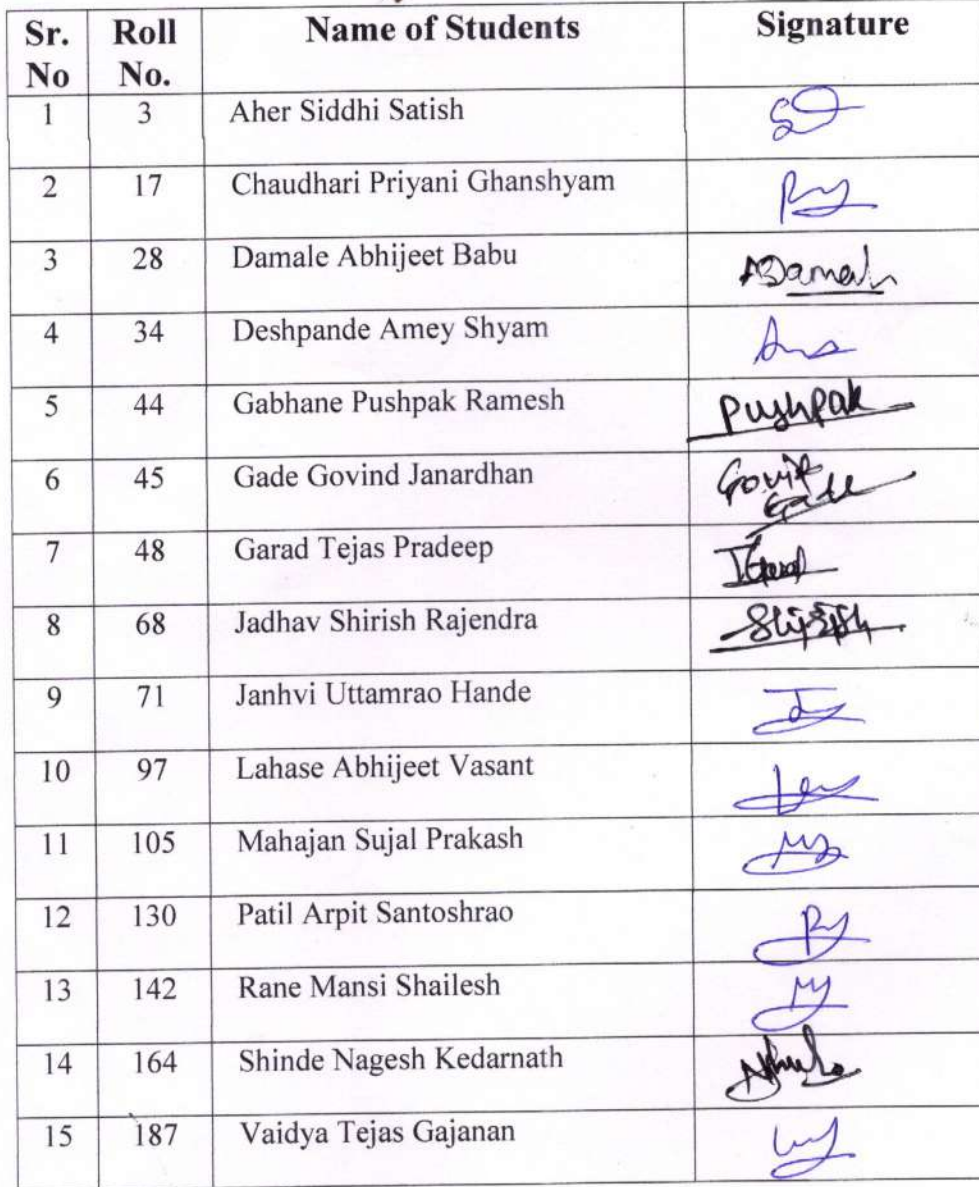 Sr. No Roll No. Name of Students Signature
1 3 Aher Siddhi Satish
2 17 Chaudhari Priyani Ghanshyam
3 28 Damale Abhijeet Babu
4 34 Deshpande Amey Shyam
5 44 Gabhane Pushpak Ramesh Pushpak
6 45 Gade Govind Janardhan
7 48 Garad Tejas Pradeep
8 68 Jadhav Shirish Rajendra
9 71 Janhvi Uttamrao Hande
10 97 Lahase Abhijeet Vasant
11 105 Mahajan Sujal Prakash
12 130 Patil Arpit Santoshrao
13 142 Rane Mansi Shailesh
14 164 Shinde Nagesh Kedarnath
15 187 Vaidya Tejas Gajanan